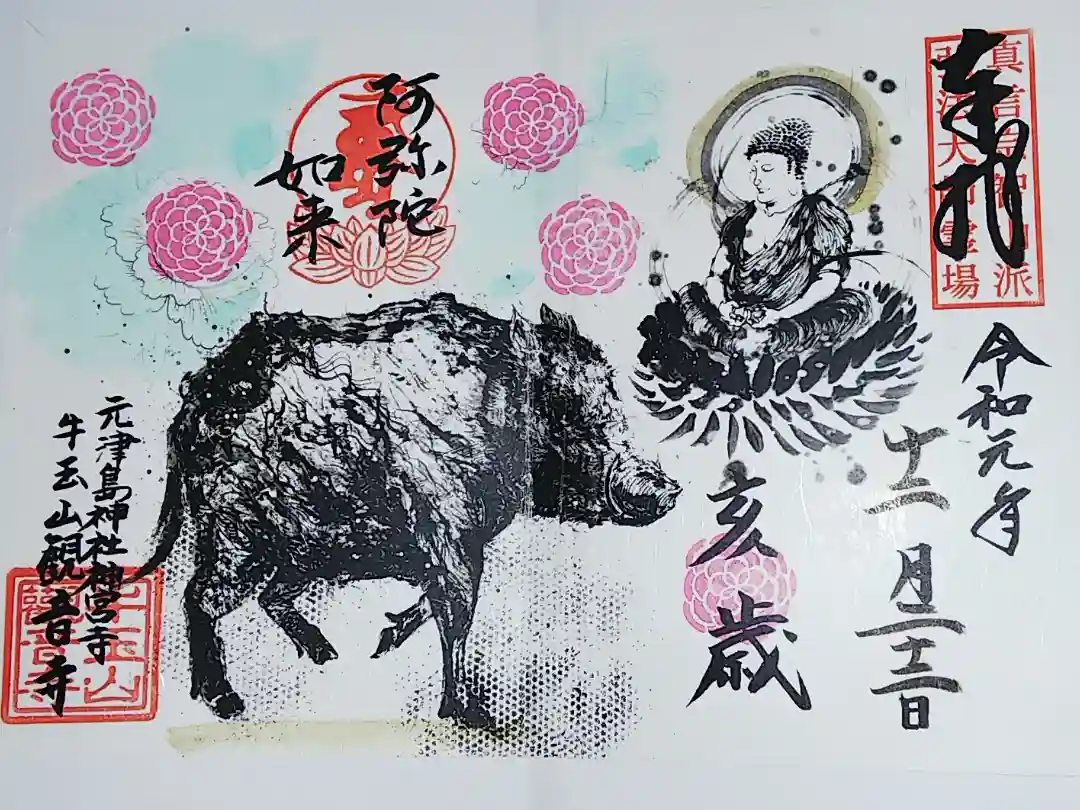 奉拝
真言宗智山派
弘法大師霊場
令和元年
十二月二十二日
亥歳
阿弥陀
如来
元津島神社神宮寺
牛玉山観音寺
牛玉山
観音寺